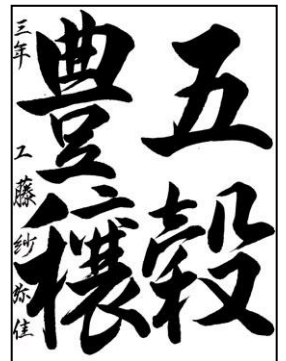 五穀
豊穣
三年 工藤紗弥佳